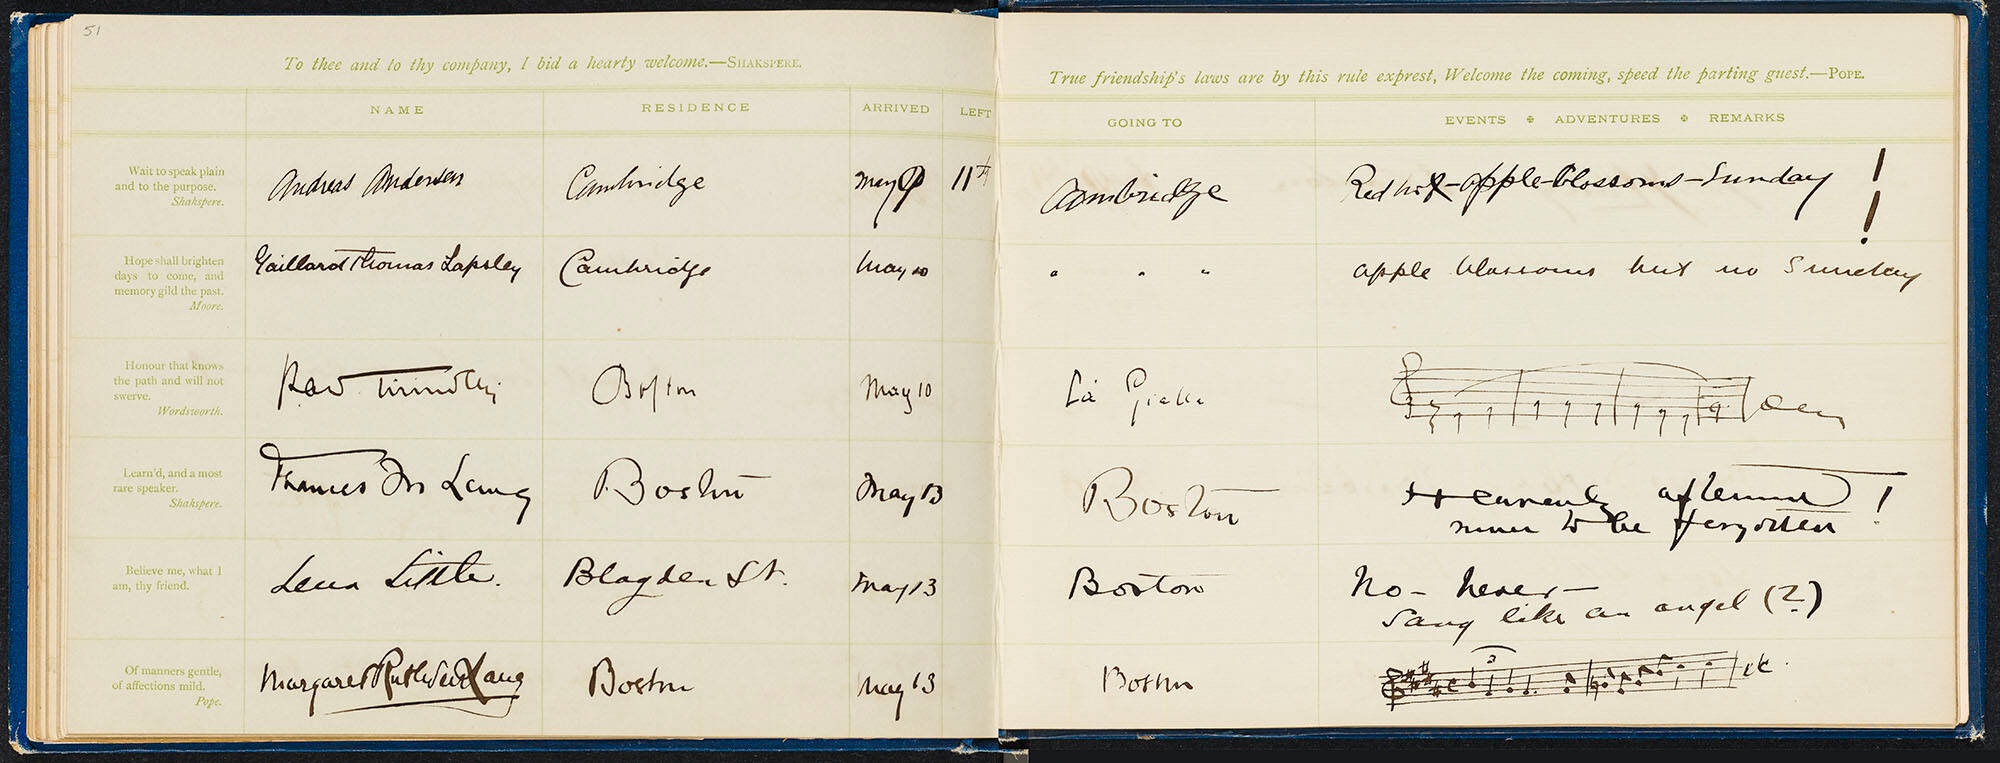 51
To thee and to thy company, I bid a hearty welcome.—SHAKSPERE.
NAME RESIDENCE ARRIVED LEFT
Wait to speak plain
and to the purpose.
Shakspere.
Andreas Andersen Cambridge May 11th
Hope shall brighten
days to come, and
memory gild the past.
Moore.
Gaillard Thomas Lapsley Cambridge May 10
Honour that knows
the path and will not
swerve.
Wordsworth.
Boston May 10
Learn'd, and a most
rare speaker.
Shakspere.
Lang Boston May 13
Believe me, what I
am, thy friend.
Lena Little. Blagden St. May 13
Of manners gentle,
of affections mild.
Pope.
Margaret Ruthven Lang Boston May 13
True friendship's laws are by this rule exprest, Welcome the coming, speed the parting guest.—POPE.
GOING TO EVENTS ✠ ADVENTURES ✠ REMARKS
Cambridge Red hot-apple-blossoms-Sunday !!
" " " apple blossoms but no Sunday
La
Boston A heavenly afternoon !
never to be forgotten
Boston No - never -
Sang like an angel (?)
Boston 3 etc.